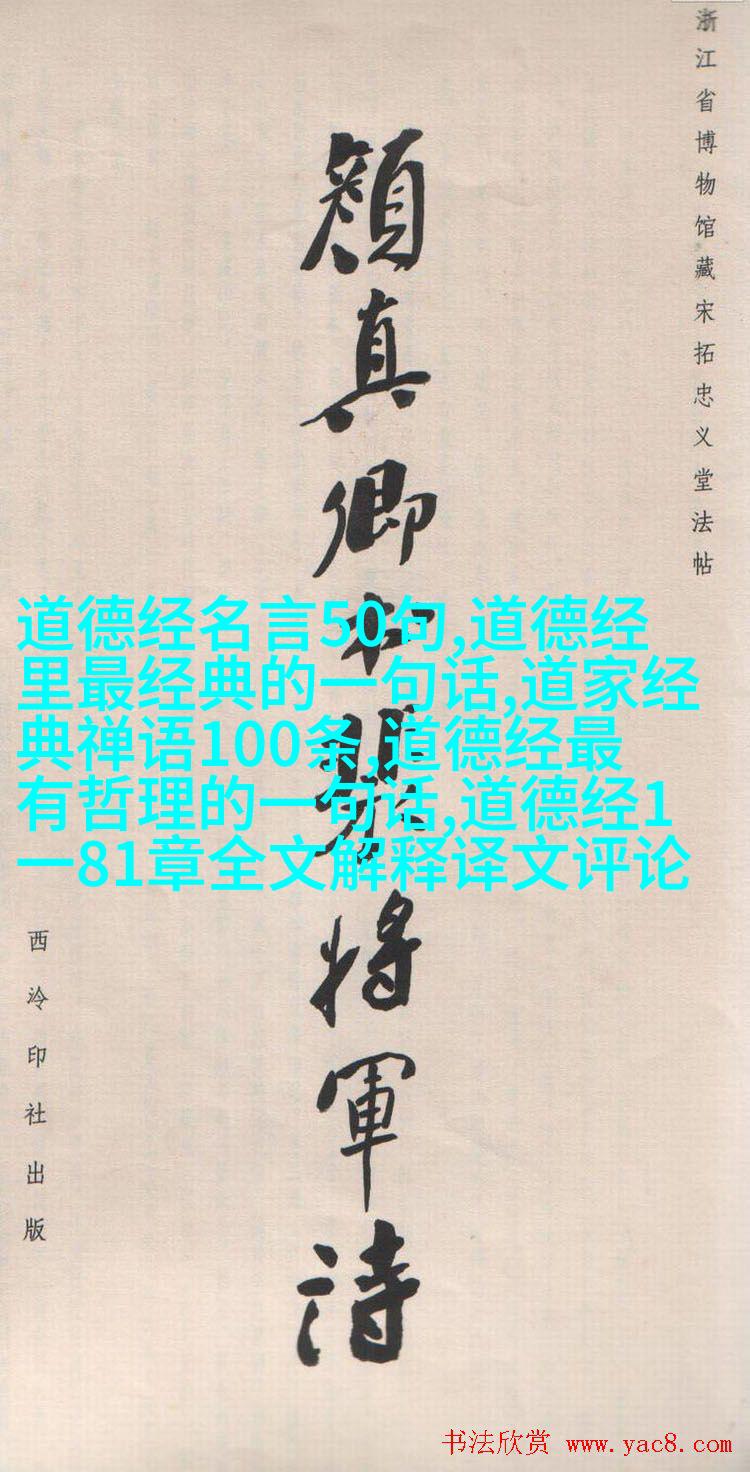 浙江省博物馆藏宋拓忠义堂法帖
顔真卿书裴将軍诗
道德经名言50句,道德经
里最经典的一句话,道家经
典禅语100条,道德经最
有哲理的一句话,道德经1
一81章全文解释译文评论
西泠印社出版
书法欣赏 www.yac8.com